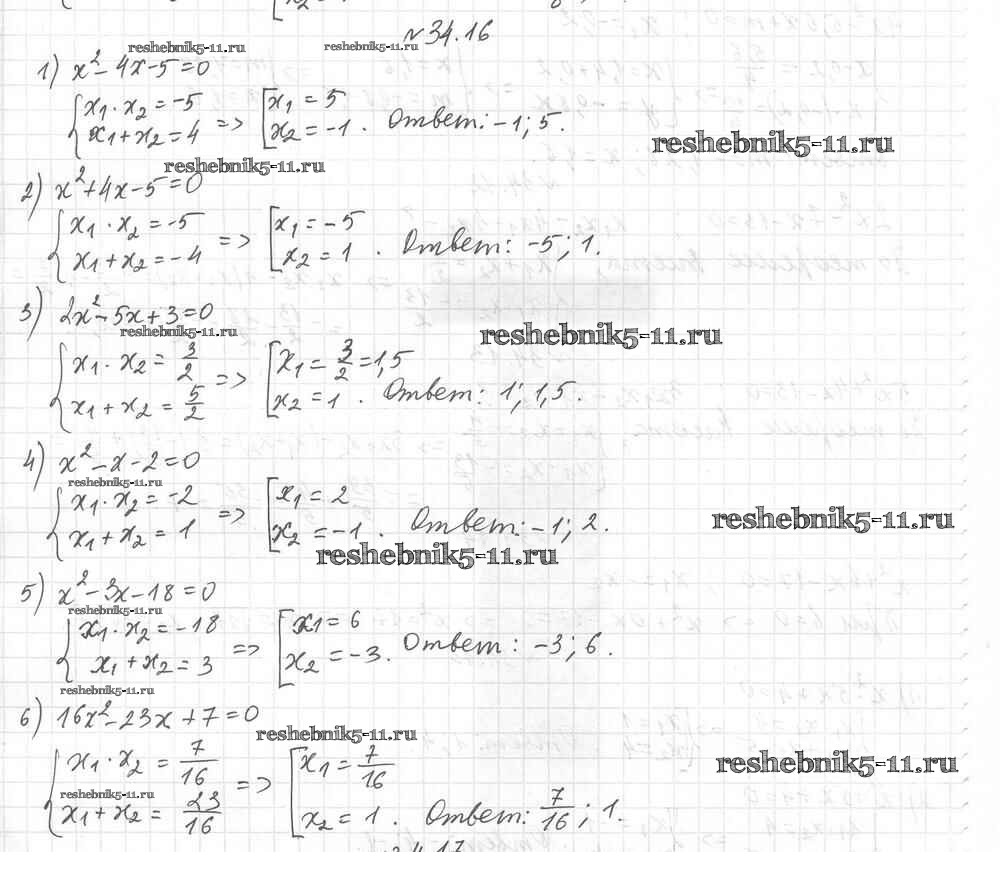 №34.16
reshebnik5-11.ru reshebnik5-11.ru
1) x² - 4x - 5 = 0
{ x₁ · x₂ = -5
x₁ + x₂ = 4 => [ x₁ = 5
x₂ = -1 . Ответ: -1; 5.
reshebnik5-11.ru
reshebnik5-11.ru
2) x² + 4x - 5 = 0
{ x₁ · x₂ = -5
x₁ + x₂ = -4 => [ x₁ = -5
x₂ = 1 . Ответ: -5; 1.
3) 2x² - 5x + 3 = 0
reshebnik5-11.ru reshebnik5-11.ru
{ x₁ · x₂ = 3/2
x₁ + x₂ = 5/2 => [ x₁ = 3/2 = 1,5
x₂ = 1 . Ответ: 1; 1,5.
4) x² - x - 2 = 0
reshebnik5-11.ru
{ x₁ · x₂ = -2
x₁ + x₂ = 1 => [ x₁ = 2
x₂ = -1 . Ответ: -1; 2.
reshebnik5-11.ru
reshebnik5-11.ru
5) x² - 3x - 18 = 0
reshebnik5-11.ru
{ x₁ · x₂ = -18
x₁ + x₂ = 3 => [ x₁ = 6
x₂ = -3 . Ответ: -3; 6.
reshebnik5-11.ru
6) 16x² - 23x + 7 = 0
reshebnik5-11.ru
{ x₁ · x₂ = 7/16
reshebnik5-11.ru
reshebnik5-11.ru
x₁ + x₂ = 23/16 => [ x₁ = 7/16
x₂ = 1 . Ответ: 7/16; 1.